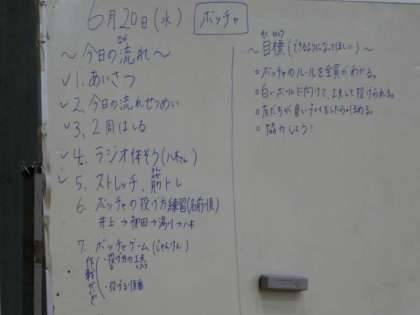 6月20日(水)
ボッチャ
〜今日の流れ〜
1. あいさつ
2. 今日の流れせつめい
3. 2周はしる
4. ラジオ体そう
5. ストレッチ、筋トレ
6. ボッチャの投げ方練習(名前順)
井上→
7. ボッチャゲーム(じゃんけん)
・投げ方の工夫
・投げる順番
〜目標(できるようになってほしい)〜
○ボッチャのルールを全員がわかる。
○白いボールに向けて、工夫して投げられる。
○友だちが良いプレイをしたらほめる。
○協力しよう!